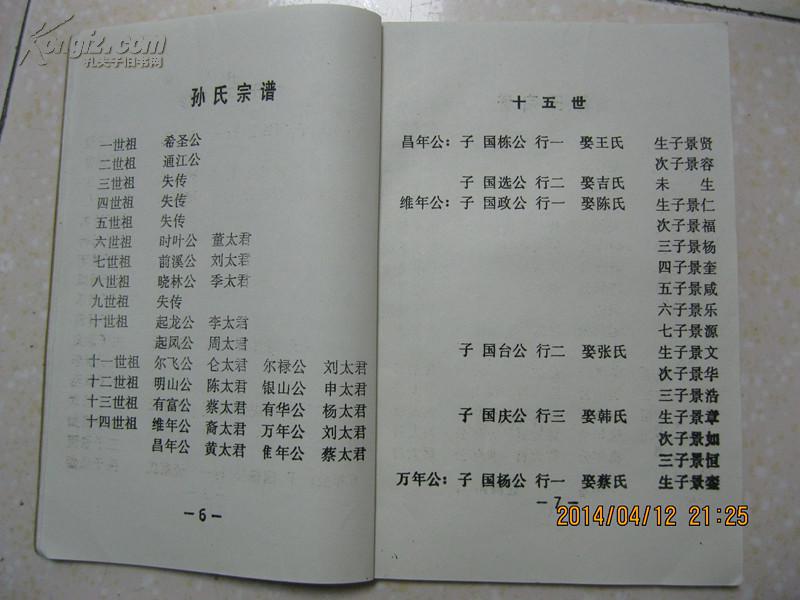 Kongfz.com
孔夫子旧书网
孙氏宗谱
一世祖 希圣公
二世祖 通江公
三世祖 失传
四世祖 失传
五世祖 失传
六世祖 时叶公 董太君
七世祖 前溪公 刘太君
八世祖 晓林公 季太君
九世祖 失传
十世祖 起龙公 李太君
起凤公 周太君
十一世祖 尔飞公 仑太君 尔禄公 刘太君
十二世祖 明山公 陈太君 银山公 申太君
十三世祖 有富公 蔡太君 有华公 杨太君
十四世祖 维年公 裔太君 万年公 刘太君
昌年公 黄太君 隹年公 蔡太君
—6—
十五世
昌年公：子 国栋公 行一 娶王氏 生子景贤
次子景容
子 国选公 行二 娶吉氏 未 生
维年公：子 国政公 行一 娶陈氏 生子景仁
次子景福
三子景杨
四子景奎
五子景咸
六子景乐
七子景源
子 国台公 行二 娶张氏 生子景文
次子景华
三子景浩
子 国庆公 行三 娶韩氏 生子景章
次子景如
三子景恒
万年公：子 国杨公 行一 娶蔡氏 生子景銮
—7—
2014/04/12 21:25